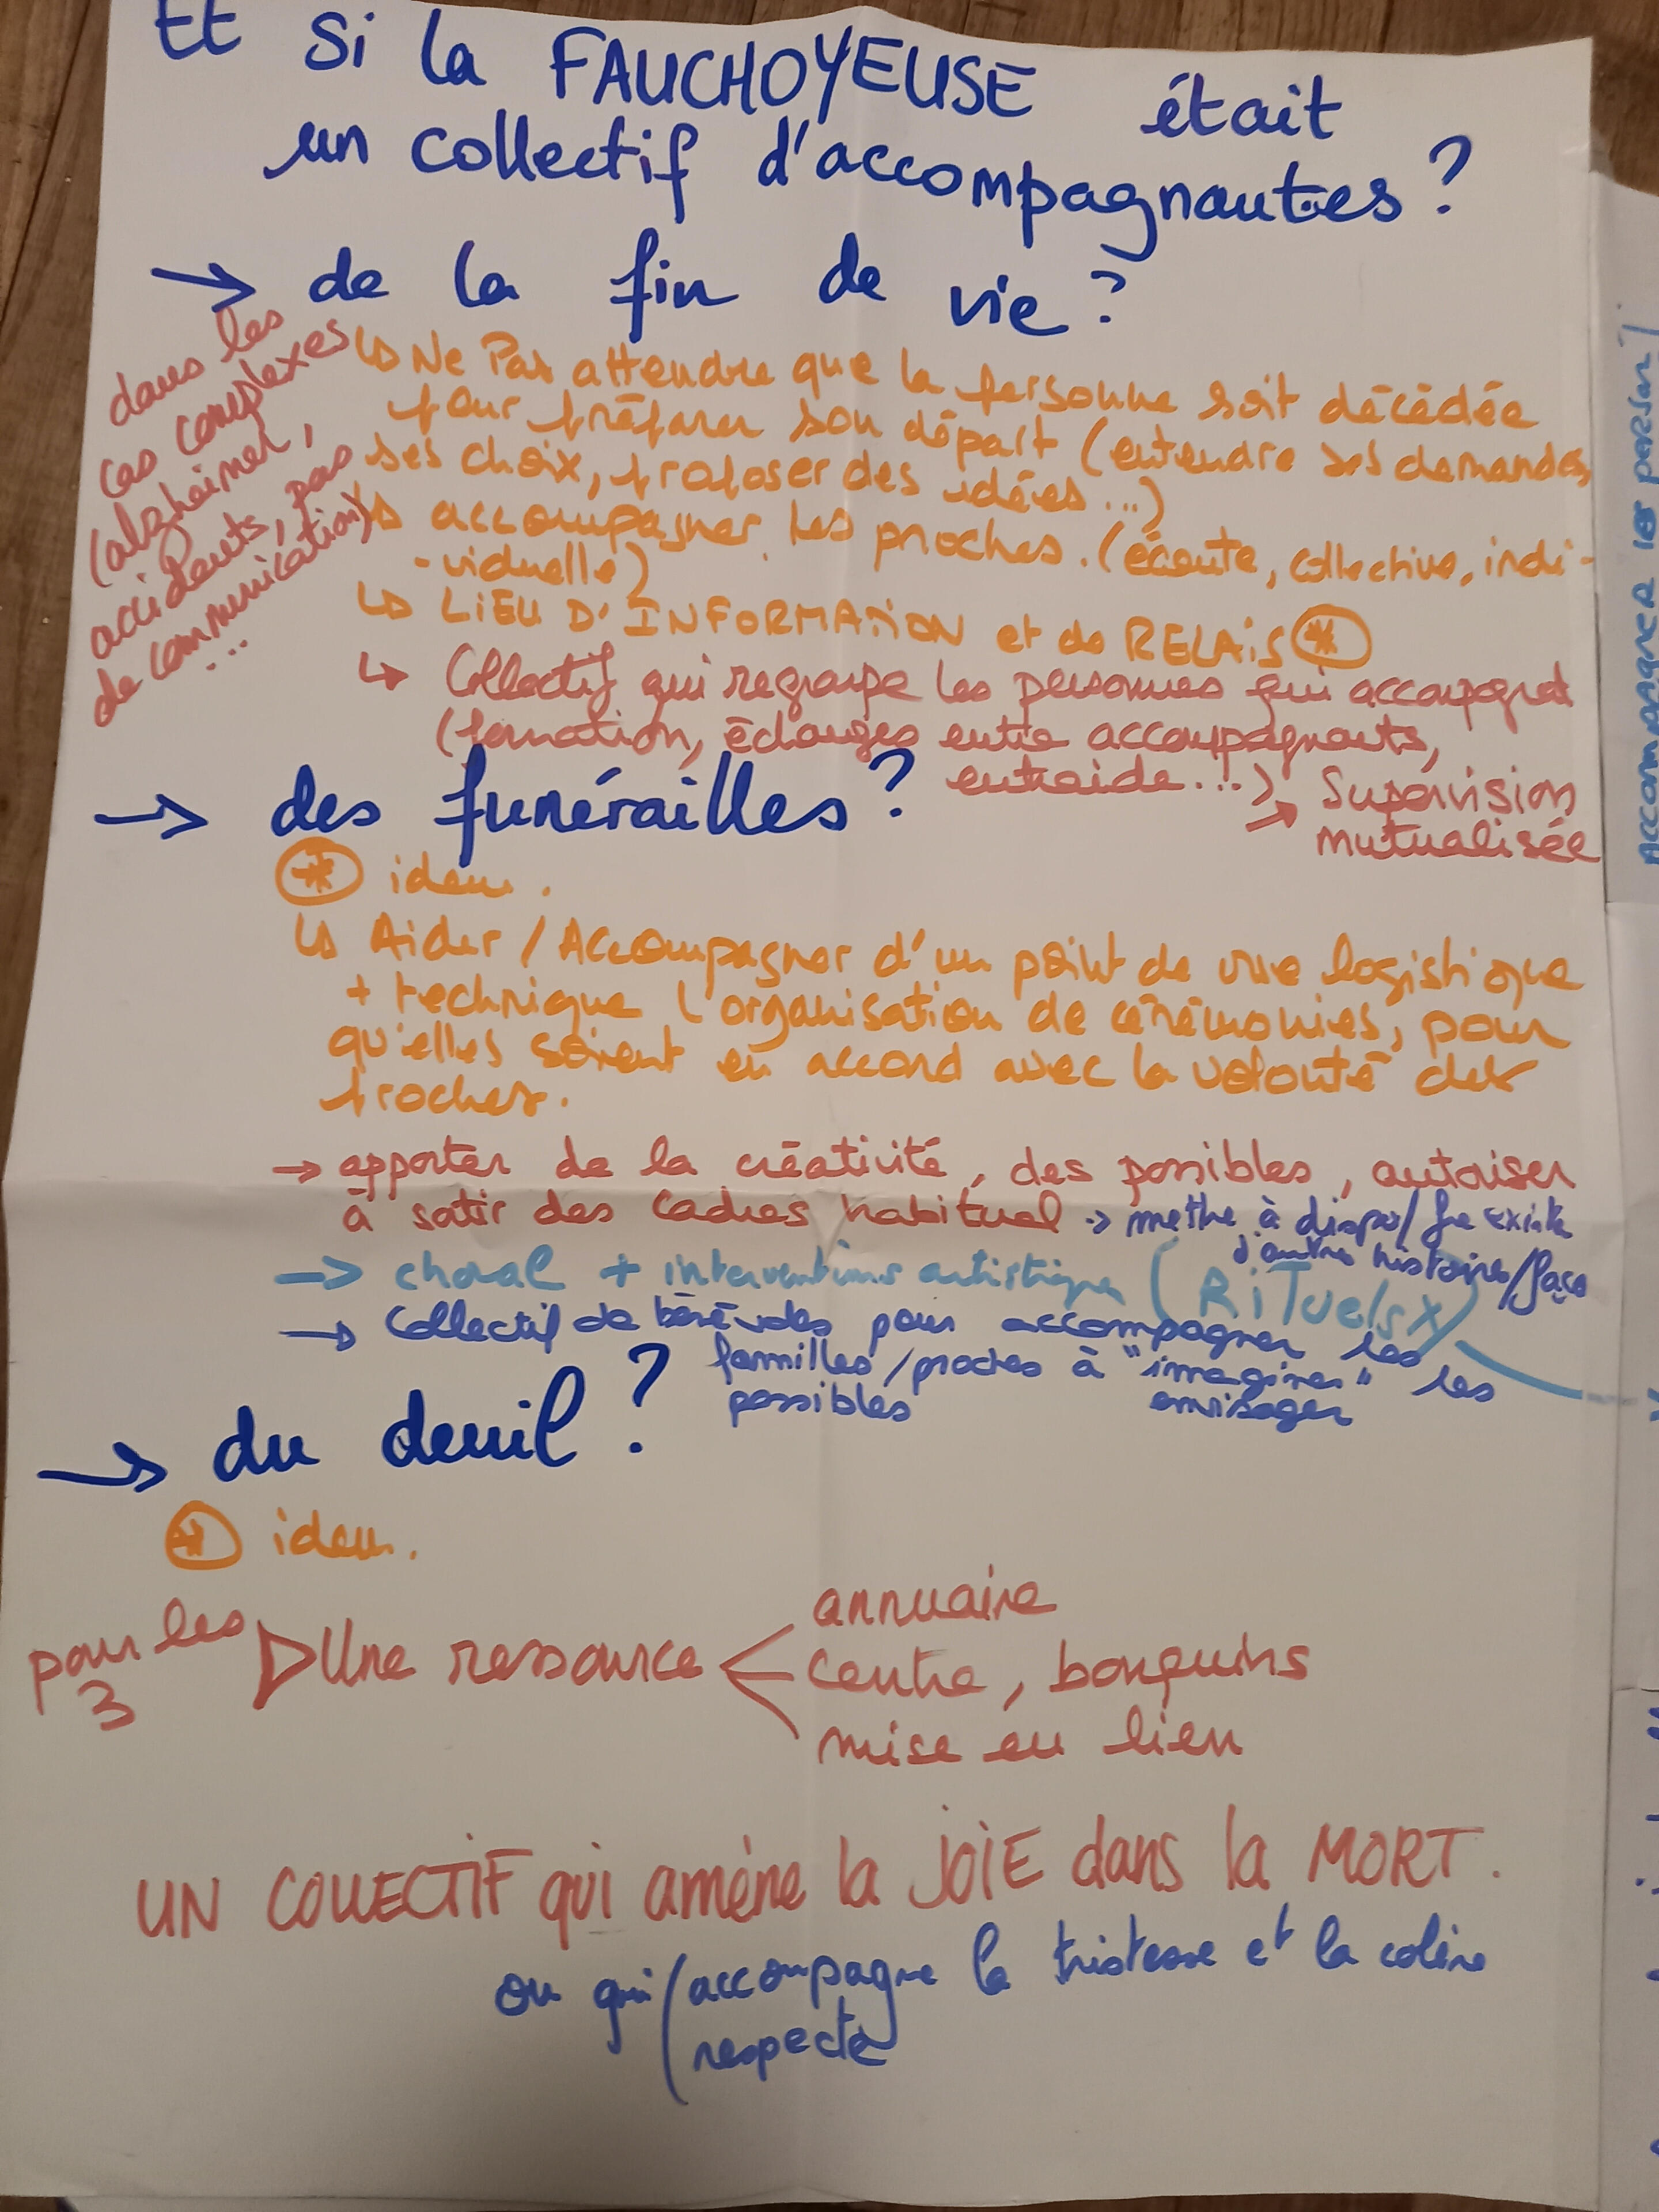 Et si la FAUCHOYEUSE était
un collectif d'accompagnautes ?
→ de la fin de vie ?
dans les
cas complexes
(alzheimer,
accidents, pas
de communication)
...
↳ Ne Pas attendre que la personne soit décédée
pour préparer son départ (entendre ses demandes,
ses choix, proposer des idées...)
↳ accompagner les proches. (écoute, collective, indi-
-viduelle)
↳ LIEU D'INFORMATION et de RELAIS *
↳ Collectif qui regroupe les personnes qui accompagnent
(formation, échanges entre accompagnants,
entraide...)
→ Supervision
mutualisée
→ des funérailles ?
* idem.
↳ Aider / Accompagner d'un point de vue logistique
+ technique l'organisation de cérémonies, pour
qu'elles soient en accord avec la volonté des
proches.
→ apporter de la créativité, des possibles, autoriser
à sortir des cadres habituel → mettre à dispo/ fre exister
d'autres histoires/façs
→ choral + interventions artistiques (RiTuelsx)
→ Collectif de bénévoles pour accompagner les
familles/proches à "imaginer" les
possibles envisager
→ du deuil ?
* idem.
pour les
3
▷ Une ressource < annuaire
centre, bouquins
mise en lien
UN COLLECTIF qui amène la JOIE dans la MORT.
ou qui / accompagne la tristesse et la colère
respecte
Accompagner les person